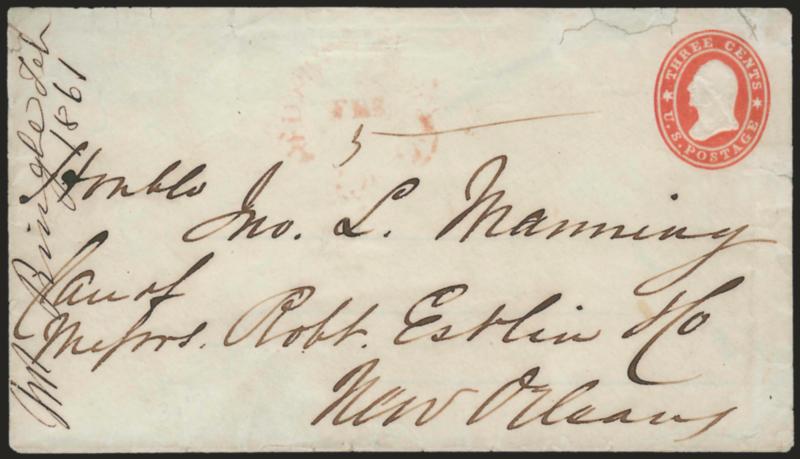 THREE CENTS
U.S. POSTAGE
FEB
5
Honble
Jno. L. Manning
Care of
Messrs. Robt. Estlin & Co
New Orleans
Bringle Feb
1861